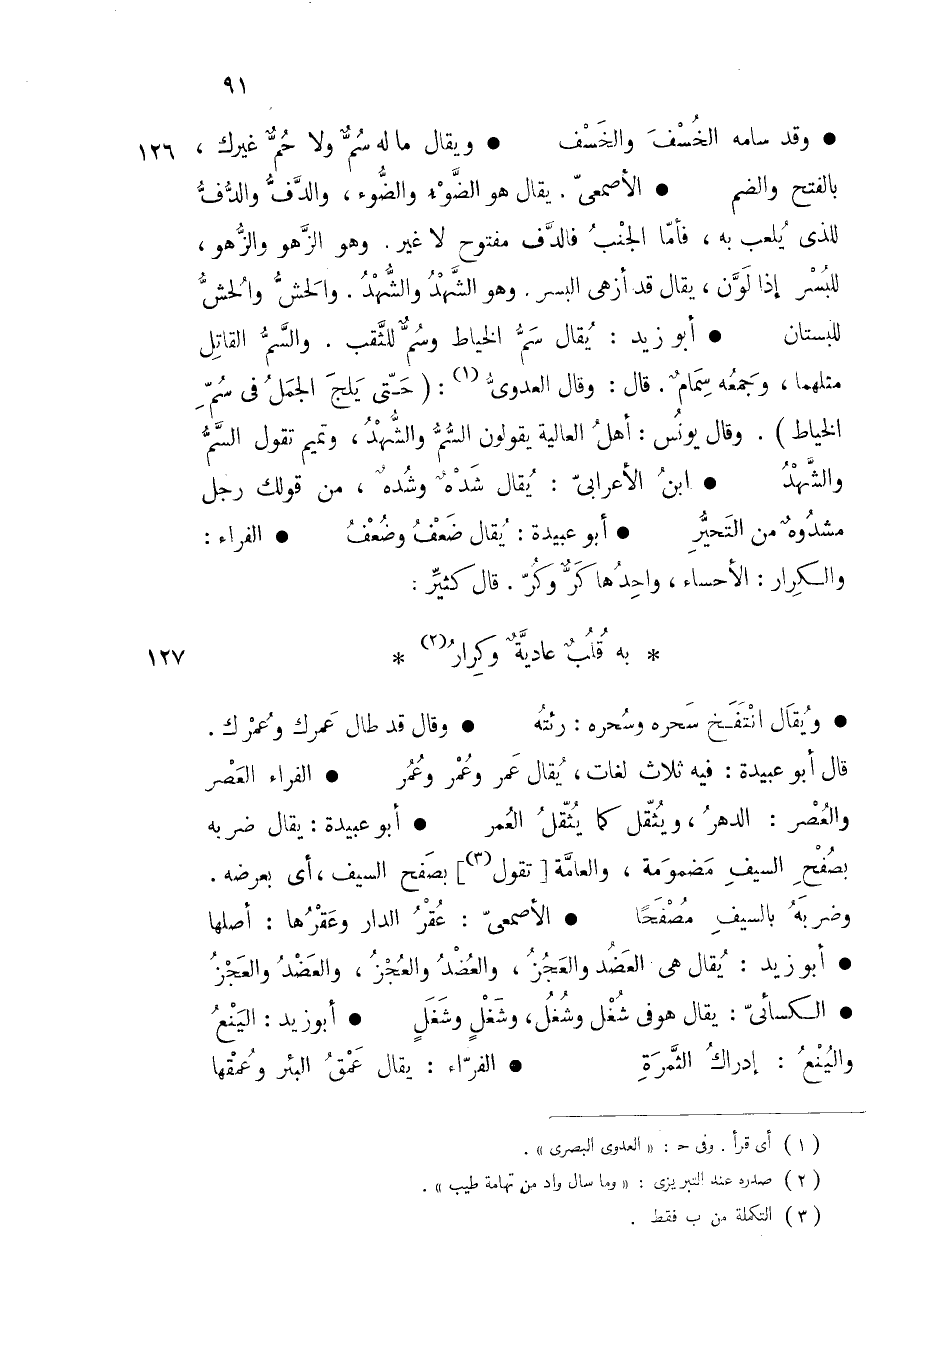 ٩١
● وقد سامه الخُسْفَ والخَسْف ● ويقال ما له سُمٌّ ولا حُمٌّ غيرك ، ١٢٦
بالفتح والضم ● الأصمعىّ . يقال هو الضَّوْء والضُّوء ، والدَّفُّ والدُّفُّ
للذى يُلعب به ، فأمّا الجنْبُ فالدَّف مفتوح لا غير . وهو الزَّهو والزُّهو ،
للبُسْر إذا لَوَّن ، يقال قد أزهى البسر . وهو الشَّهْدُ والشُّهْدُ . والَحشُّ والُحشُّ
للبستان ● أبو زيد : يُقال سَمُّ الخياط وسُمٌّ للثَّقب . والسَّمُّ القاتِل
مثلهما ، وجَمعُه سِمَامٌ . قال : وقال العدوىُّ (١) : ( حَتّى يَلِجَ الجَملُ فى سُمِّ
الخياط ) . وقال يونُس : أهلُ العالية يقولون السُّمُّ والشُّهْدُ ، وتميم تقول السَّمُّ
والشَّهْدُ ● ابنُ الأعرابىّ : يُقال شَدْهٌ وشُدهٌ ، من قولك رجل
مشدُوهٌ من التَحيُّرِ ● أبو عبيدة : يُقال ضَعْفُ وضُعْفُ ● الفراء :
والكِرار : الأحساء ، واحِدُها كَرٌّ وكُرّ . قال كثيِّر :
* به قُلُبٌ عاديَّةٌ وكِرارُ (٢) * ١٢٧
● ويُقَال انْتَفَخ سَحره وسُحره : رئتُه ● وقال قد طال عَمرك وعُمْرك .
قال أبو عبيدة : فيه ثلاث لغات ، يُقال عَمر وعُمْر وعُمُر ● الفراء العَصْر
والعُصْر : الدهرُ ، ويثقّل كما يُثقّلُ العُمر ● أبو عبيدة : يقال ضربه
بصُفْحِ السيفِ مَضمومَة ، والعامَّة [ تقول (٣) ] بصَفح السيف ، أى بعرضه .
وضربَهُ بالسيفِ مُصْفَحًا ● الأصمعىّ : عُقْرُ الدار وعَقْرُها : أصلها
● أبو زيد : يُقال هى العَضُد والعَجُزُ ، والعُضْدُ والعُجْزُ ، والعَضْدُ والعَجْزُ
● الكسائىّ : يقال هو فى شُغْل وشُغُل ، وشَغْلٍ وشَغَلٍ ● أبو زيد : اليَنْعُ
واليُنْعُ : إدراكُ الثَّمرَةِ ● الفرّاء : يقال عَمْقُ البئر وعُمقْها
( ١ ) أى قرأ . وفى ح : « العدوى البصرى » .
( ٢ ) صدره عند التبريزى : « وما سال واد من تهامة طيب » .
( ٣ ) التكملة من ب فقط .